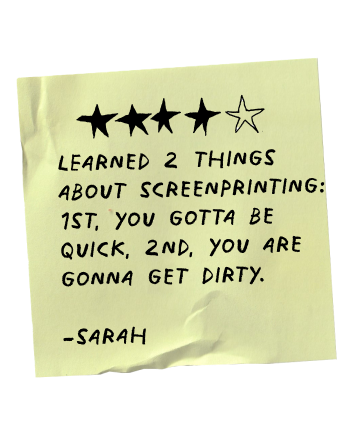 LEARNED 2 THINGS
ABOUT SCREENPRINTING:
1ST, YOU GOTTA BE
QUICK, 2ND, YOU ARE
GONNA GET DIRTY.
-SARAH